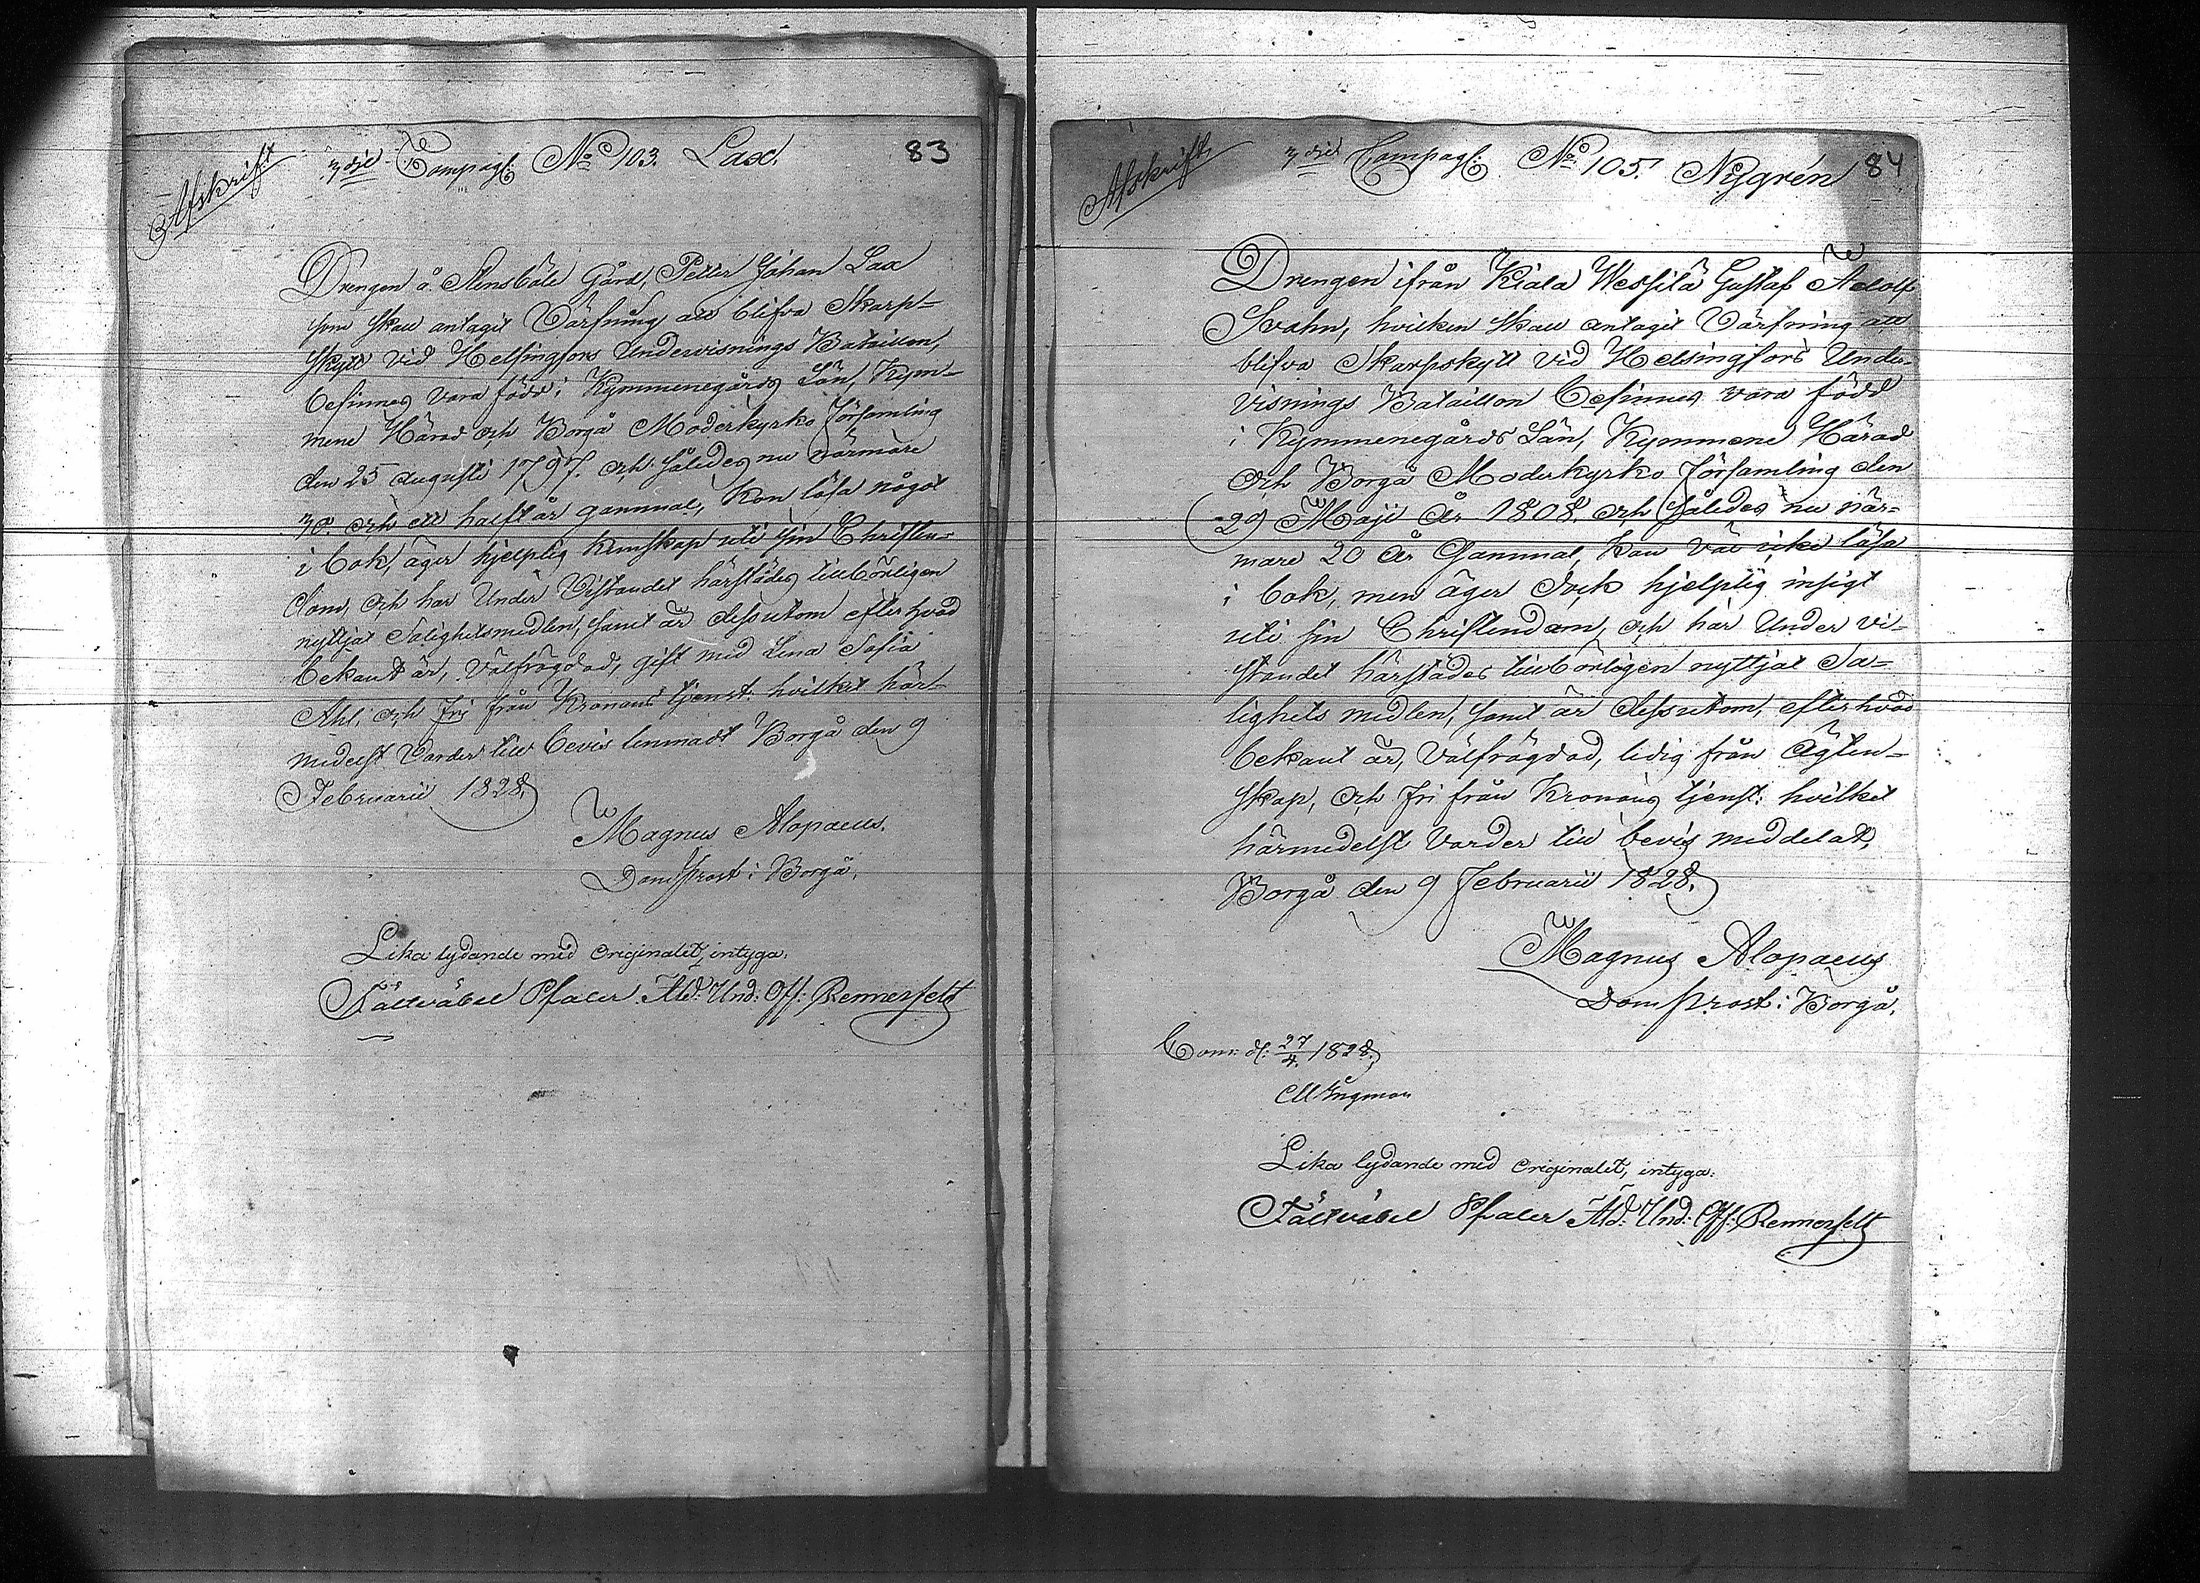 Afskrift
3dje Compagl: No 103. Lax. 83
Drengen å Stensböle Gård, Petter Johan Lax
som skall antagit Värfning att blifva Skarp-
skytt vid Helsingfors Undervisnings Bataillon,
befinnes vara född i Kymmenegårds Län, Kym-
mene Härad och Borgå Moderkyrko församling
den 25 Augusti 1797. och således nu närmare
30. och ett halft år gammal, kan läsa något
i bok, äger hjelplig kunskap uti sin Christen-
dom, och har Under Vistandet härstädes tillbörligen
nyttjat Salighetsmedlen, samt är dessutom efter hvad
bekant är, Välfrägdad, gift med Lena Sofia
Ahl; och fri från Kronans tjenst. hvilket här-
medelst Varder till bevis lemnadt Borgå den 9
Februarii 1828.
Magnus Alopaeus.
Domprost i Borgå.
Lika lydande med Originalet, intyga.
Fältväbel Pfaler Äld: Und: Off: Rennerfelt
Afskrift
3dje Compagl: No 105. Nygrén 84
Drengen ifrån Kiala Wessilä Gustaf Adolf
Svahn, hvilken skall antagit Värfning att
blifva Skarpskytt vid Helsingfors Under-
visnings Bataillon befinnes vara född
i Kymmenegårds Län, Kymmene Härad
och Borgå Moderkyrko församling den
29 Maji År 1808. och således nu när-
mare 20 år Gammal, kan väl icke läsa
i bok, men äger dock hjelplig insigt
uti sin Christendom, och har Under vi-
standet härstädes tillbörligen nyttjat Sa-
lighets medlen, samt är dessutom, efter hvad
bekant är, Välfrägdad, ledig från Ägten-
skap, och fri från Kronans tjenst: hvilket
härmedelst Varder till bevis meddelat,
Borgå den 9 Februarii 1828.
Magnus Alopaeus
Domprost i Borgå.
Com: d: 27/4 1828.
Ingman
Lika lydande med Originalet, intyga:
Fältväbel Pfaler Äld: Und: Off: Rennerfelt